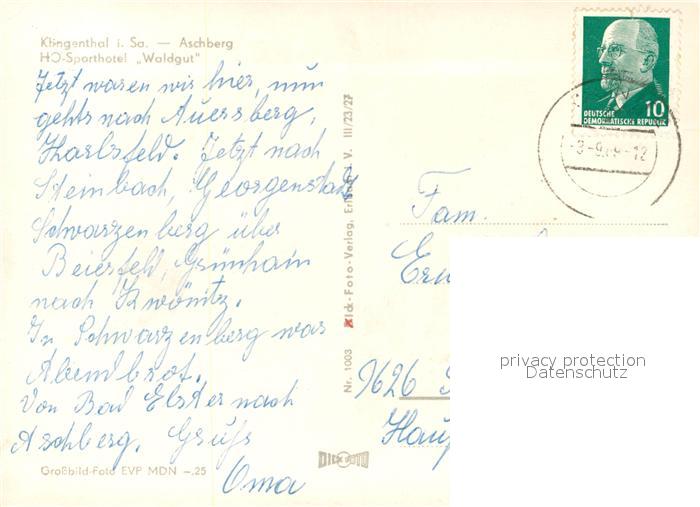 Klingenthal i. Sa. — Aschberg
HO-Sporthotel „Waldgut"
Jetzt waren wir hier, nun
gehts nach Auersberg,
Karlsfeld. Jetzt nach
Steinbach, Georgenstadt
Schwarzenberg über
Beierfeld, Grünhain
nach Zwönitz.
In Schwarzenberg war
Abendbrot.
Von Bad Elster nach
Aschberg. Gruß
Oma
Großbild-Foto EVP MDN –.25
Nr. 1003 Dick-Foto-Verlag, V. III/23/27
DICK FOTO
10
DEUTSCHE
DEMOKRATISCHE REPUBLIK
Fam.
9626
privacy protection
Datenschutz